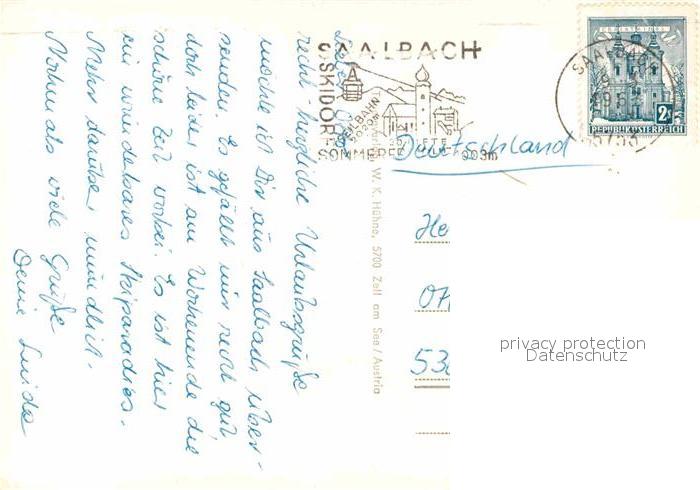 Lieber
recht herzliche Urlaubsgrüße
möchte ich Dir aus Saalbach über-
senden. Es gefällt mir recht gut
doch leider ist am Wochenende die
schöne Zeit vorbei. Es ist hier
ein wunderbares Skiparadies.
Mehr darüber mündlich.
Nochmals viele Grüße
Deine Luida
SAALBACH
SKIDORF
SEILBAHN
2020m
SOMMERFR
1003m
SAALBACH
REPUBLIK ÖSTERREICH
2S
Deutschland
He
07
53
W. K. Hühne, 5700 Zell am See/Austria
privacy protection
Datenschutz